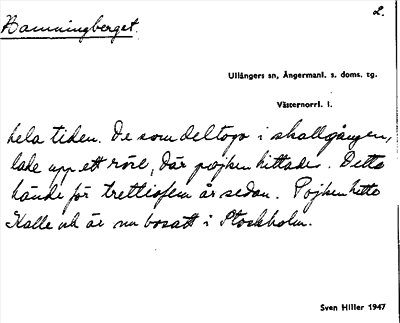 Bamningberget.
2.
Ullångers sn, Ångermanl. s. doms. tg.
Västernorrl. l.
hela tiden. De som deltogo i skallgången,
lade upp ett röse, där pojken hittades. Detta
hände för trettiofem år sedan. Pojken hette
Kalle och är nu bosatt i Stockholm.
Sven Hiller 1947